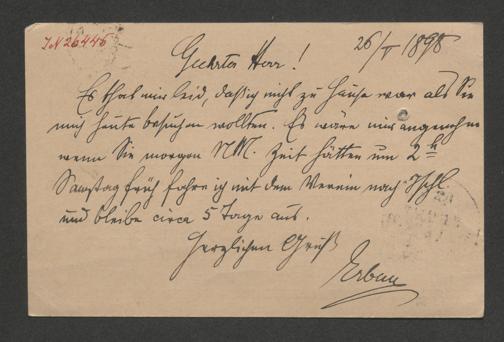 IN 26445
26/V 1898
Geehrter Herr!
Es that mir leid, daß ich nicht zu Hause war als Sie
mich heute besuchen wollten. Es wäre mir angenehm
wenn Sie morgen NM. Zeit hätten um 2 h
Samstag früh fahre ich mit dem Verein nach Ischl
und bleibe circa 5 Tage aus.
Herzlichen Gruß
Urban